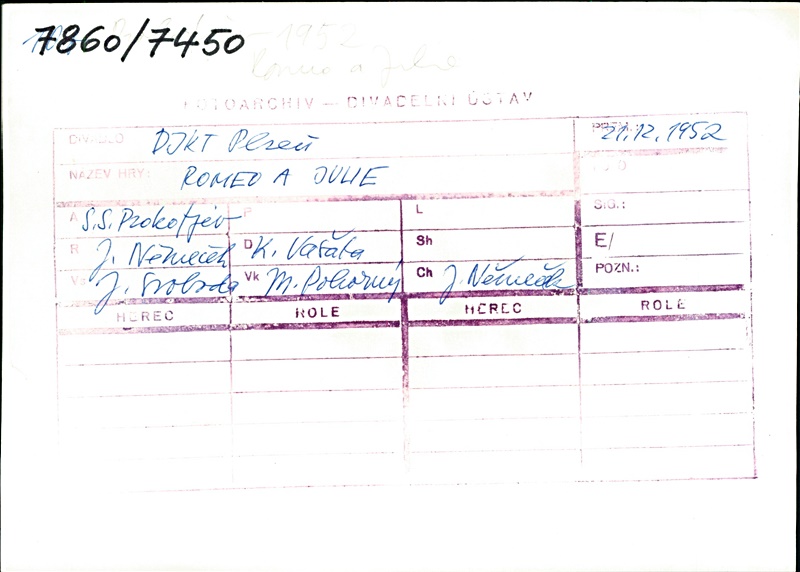 7860/7450
1952
Romeo a Julie
FOTOARCHIV — DIVADELNÍ ÚSTAV
DIVADLO DJKT Plzeň 21.12.1952
NÁZEV HRY: ROMEO A JULIE
A S.S. Prokofjev P L SIG.:
R J. Němeček D K. Vašata Sh E/
J. Svoboda Vk M. Pokorný Ch J. Němeček POZN.:
HEREC ROLE HEREC ROLE